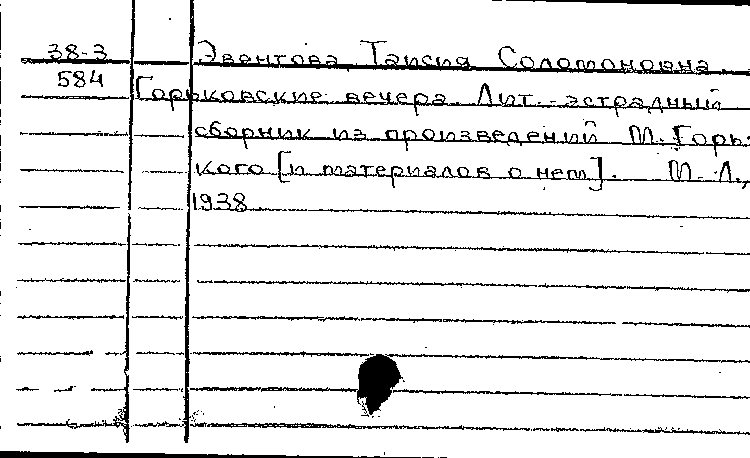 38-3 Эвентова Таисия Соломоновна.
584 Горьковские вечера. Лит.-эстрадный
сборник из произведений М. Горь-
кого [и материалов о нем]. М. Л.,
1938